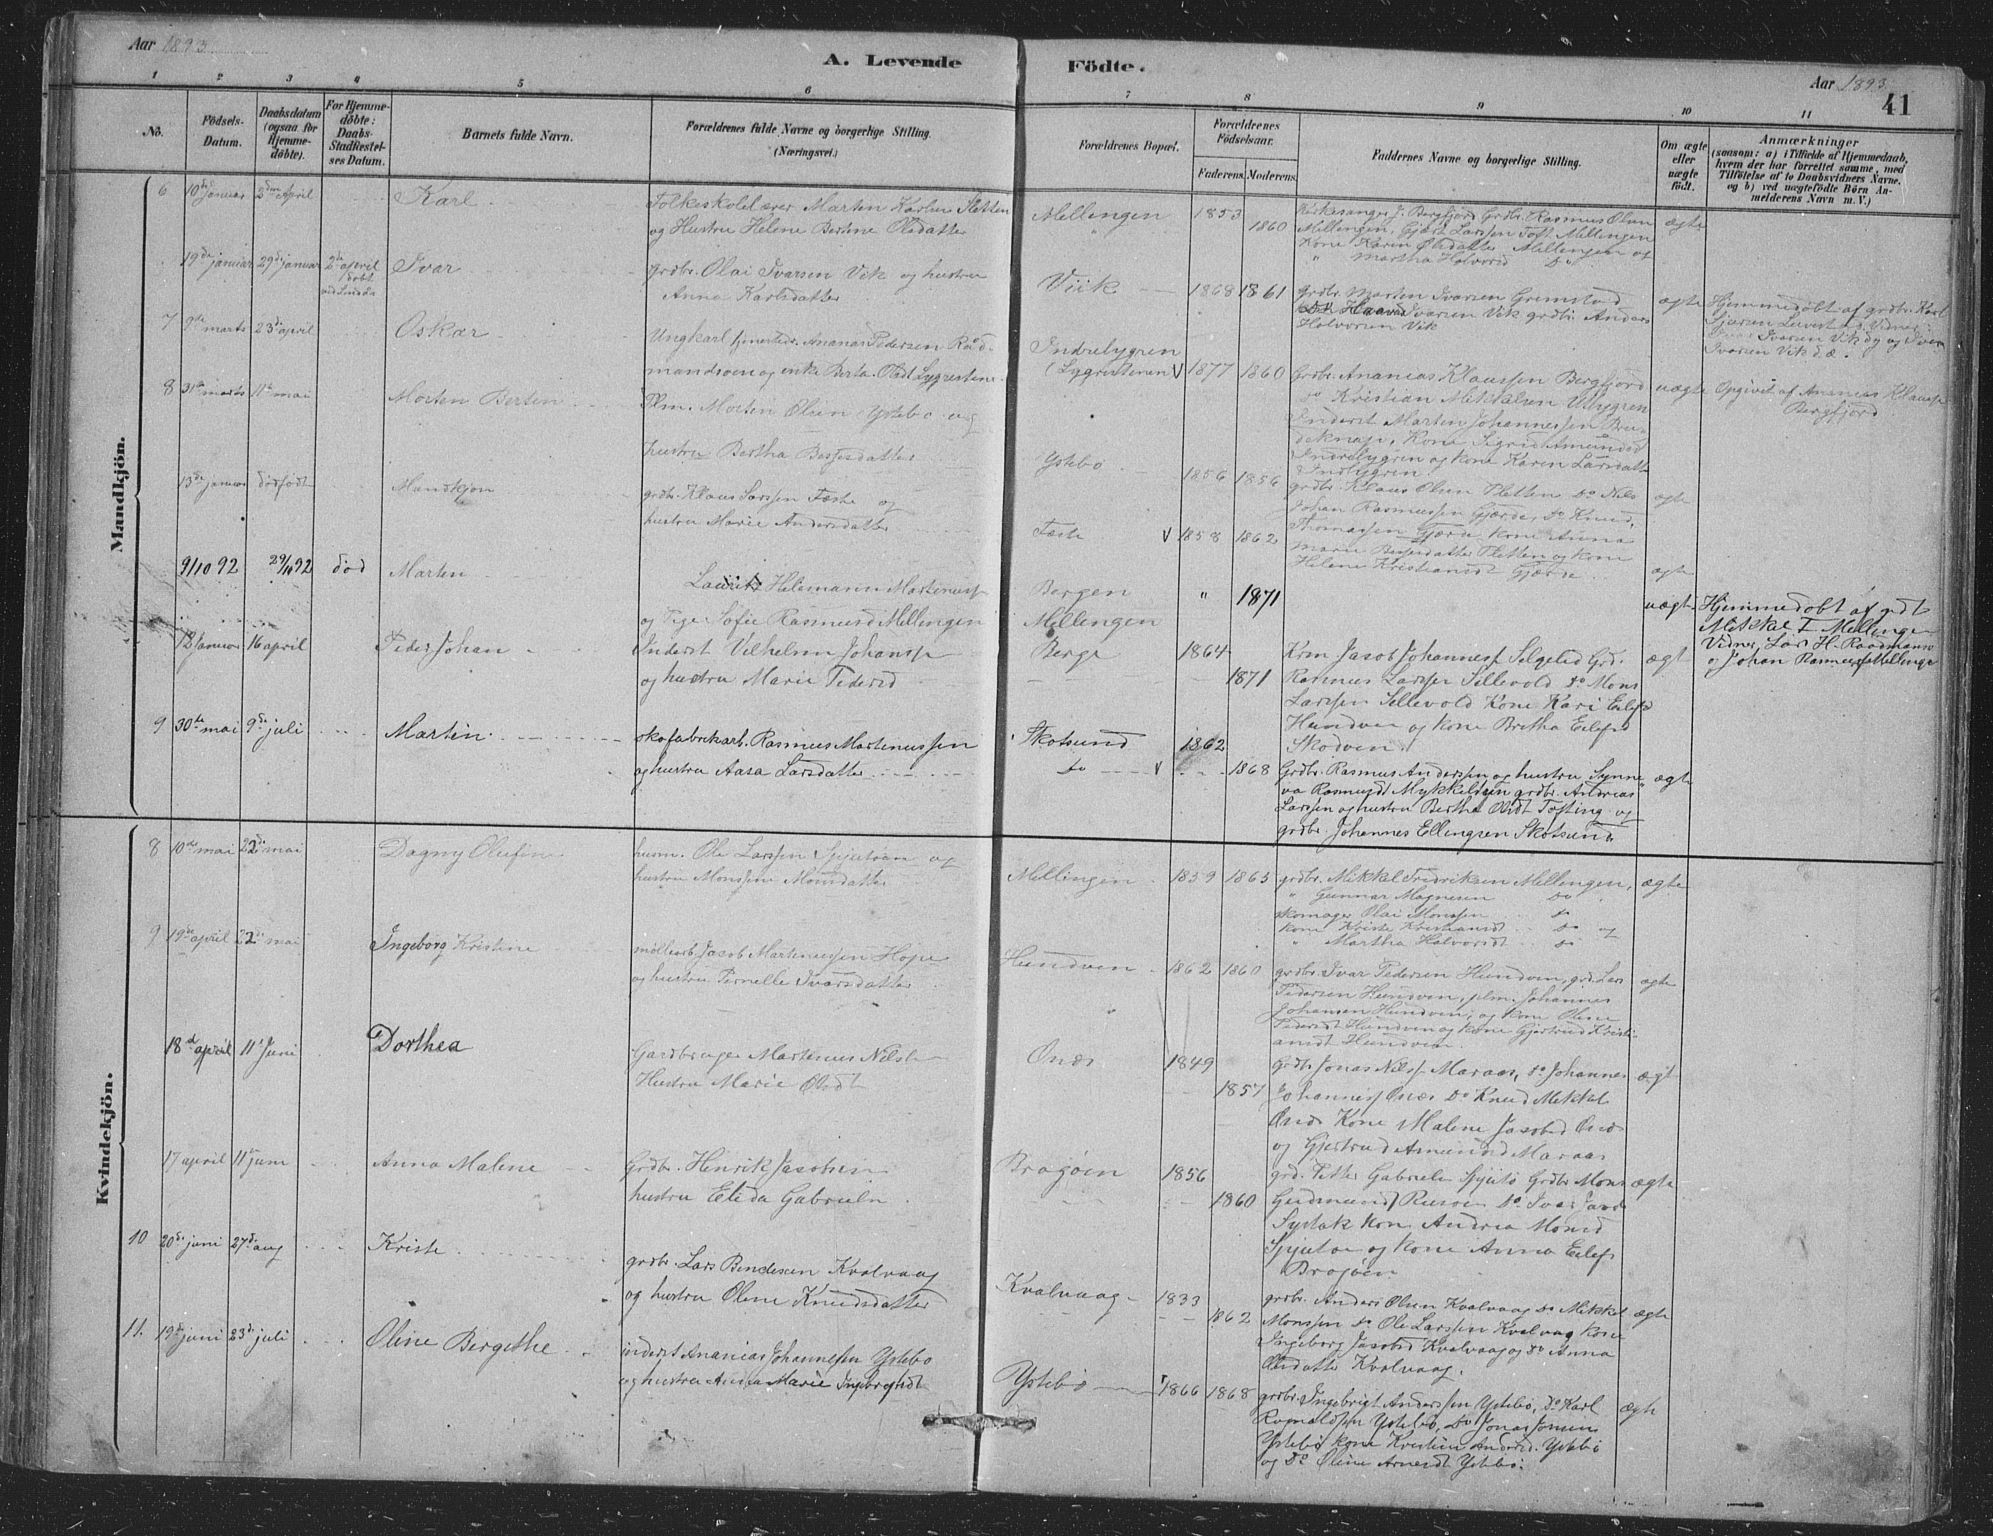 Aar 1893
A. Levende Födte.
Aar 1893
41
1 2 3 4 5 6 7 8 9 10 11
No.
Födsels-Datum.
Daabsdatum (ogsaa for Hjemme-döbte).
For Hjemme-döbte: Daabs-Stadfæstel-ses Datum.
Barnets fulde Navn.
Forældrenes fulde Navne og borgerlige Stilling.
(Næringsvei.)
Forældrenes Bopæl.
Forældrenes Födselsaar.
Faderens. Moderens.
Faddernes Navne og borgerlige Stilling.
Om ægte eller uægte födt.
Anmærkninger
(saasom: a) i Tilfælde af Hjemmedaab, hvem der har forrettet samme, med Tilföielse af to Daabsvidners Navne, og b) ved uægtefödte Börn An-melderens Navn m. V.)
Mandkjön.
6 10de januar 2den April Karl
Folkeskolelærer Marten Karlsen Sletten
og Hustru Helene Bertine Olsdatter
Mellingen 1853 1860
Kirkesanger J. Bergfjord Grdbr. Rasmus Olsen
Mellingen, Gjert Larssen Toft Mellingen
Kone Karen Olsdatter Mellingen og
" Martha Holvorsd do
ægte
19de januar 29de januar 2de april døbt Ivar
grdbr. Olai Ivarsen Vik og hustru
Anna Karlsdatter
Viik 1868 1861
grdbr. Morten Ivarsen Gremstad
Ivarsen Vik grdbr. Anders
Holvorsen Vik
ægte
Hjemmedøbt af grdbr. Karl
Vidner
Ivarsen Vik og
Ivarsen Vik
7 9de marts 23de april Oskar
Ungkarl Ananias Pedersen Raad-
mandsøen og enke Berta Olsdt Lygresten
Indrelygren
(Lygrestenen V 1877 1860
Grdbr. Ananias Klaussen Bergfjord
do Kristian Mikkalsen Utlygren
Inderst Marten Johannessen
Kone Sigrid Amundsd
Indrelygren og kone Karen Larsdatter
Indrelygren
uægte
Opgivet af Ananias Klausen
Bergfjord
8 31te marts 11te mai Morten Berten
Plm. Morten Olsen Ystebø og
hustru Bertha Børgesdatter
Ystebø 1856 1856
grdbr. Klaus Olsen Sletten do Nils
Johan Rasmussen Gjerde, do Knud
Thomassen Gjere kone Anna
Marie Børgesdatter Sletten og kone
Helene Kristiansd Gjerde
ægte
13de januar dødfødt Mandkjøn
grdbr. Klaus Larssen Fæste og
hustru Marie Andersdatter
Fæste V 1858 1862
ægte
9/10 92 29/10 92 død Marten
Laurits Helemann Martenussen
og Pige Sofie Rasmusd Mellingen
Bergen "
Mellingen 1871
uægt
Hjemmedøbt af grdt
Mikkel F Mellingen
Vidner, Lars H. Raadmanso
og Johan Rasmussen Mellinge
18 januar 16 april Peder Johan
Inderst Vilhelm Johanss
og hustru Marie Pedersd
Berge 1864 1871
Krm Jacob Johanness Selgstad Grd.
Rasmus Larssen Sellevold do Mons
Larssen Sellevold Kone Kari Eilefs
Hundven og kone Britha Eilefsd
Skodven
ægt
9 30te mai 9de juli Martin.
skofabrikarb. Rasmus Martenussen
og hustru Aasa Larsdatter
Skotsund 1862
do V 1868
Grdbr. Rasmus Anderssen og hustru Synne
va Rasmusd Mykkeltun grdbr. Andreas
Larssen og hustru Bertha Olsdt Tofting og
grdbr. Johannes Ellingsen Skotsund
ægte
Kvindekjön.
8 10de mai 22de mai Dagny Olufine
husm. Ole Larssen Spjutøen og
hustru Monssine Monsdatter
Mellingen 1859 1865
grdbr. Mikkel Fredriksen Mellingen,
" Gunnar Magnesen do
skomager Olai Monssen do
kone Kriste Kristiansd do og
" Martha Halvorsdt do
ægte
9 19de april 22de mai Ingeborg Kristine
møllearb. Jacob Martinussen Hope
og hustru Pernelle Ivarsdatter
Hundven 1862 1860
grdbr. Ivar Pedersen Hundven, grd. Lars
Pedersen Hundven, plm. Johannes
Johansen Hundven, og kone Oline
Pedersdt Hundven og kone Gjertrud Kristi-
ansdt Hundven
ægte
18d april 11te Juni Dorthea
Gardbruger Martenus Nilsen
Hustru Marie Olsdt
Onæs 1849 1857
grdbr Jonas Nilss Maraas, do Johannes
Johanness Onæs do Knud Mikkel
Onæs Kone Malene Jacobsd Onæs
og Gjertrud Amundsd Maraas
ægt
17 april 11te juni Anna Malene
Grdbr. Henrik Jacobsen
hustru Elida Gabrieln
Bragøen 1856 1860
grd. Petter Gabrielsen Spjutø Grdbr Mons
Gudmunds Risøen do Ivar
kone Andrea Monsd
Spjutøe og kone Anna Eilefs
Bragøen
ægte
10 20de juni 27de aug Kriste
grdbr. Lars Bendixen Kvalvaag
og hustru Oline Knudsdatter
Kvalvaag 1833 1862
grdbr. Anders Olsen Kvalvaag do Mikkel
Monssen do Ole Larssen Kvalvaag kone
Ingeborg Jacobsd Kvalvaag og do Anna
Olsdatter Kvalvaag.
ægte
11. 19de juni 23de juli Oline Bergithe
inderst Ananias Johannesen Ystebø
og hustru Anna Marie Ingebrigtsdt
Ystebø 1866 1868
grdbr. Ingebrigt Anderssen Ystebø, do Karl
Romaldsen Ystebø, do Jonas Jonsen
Ystebø kone Kristine Andersd. Ystebø
og do Oline Arnesdt Ystebø.
ægte